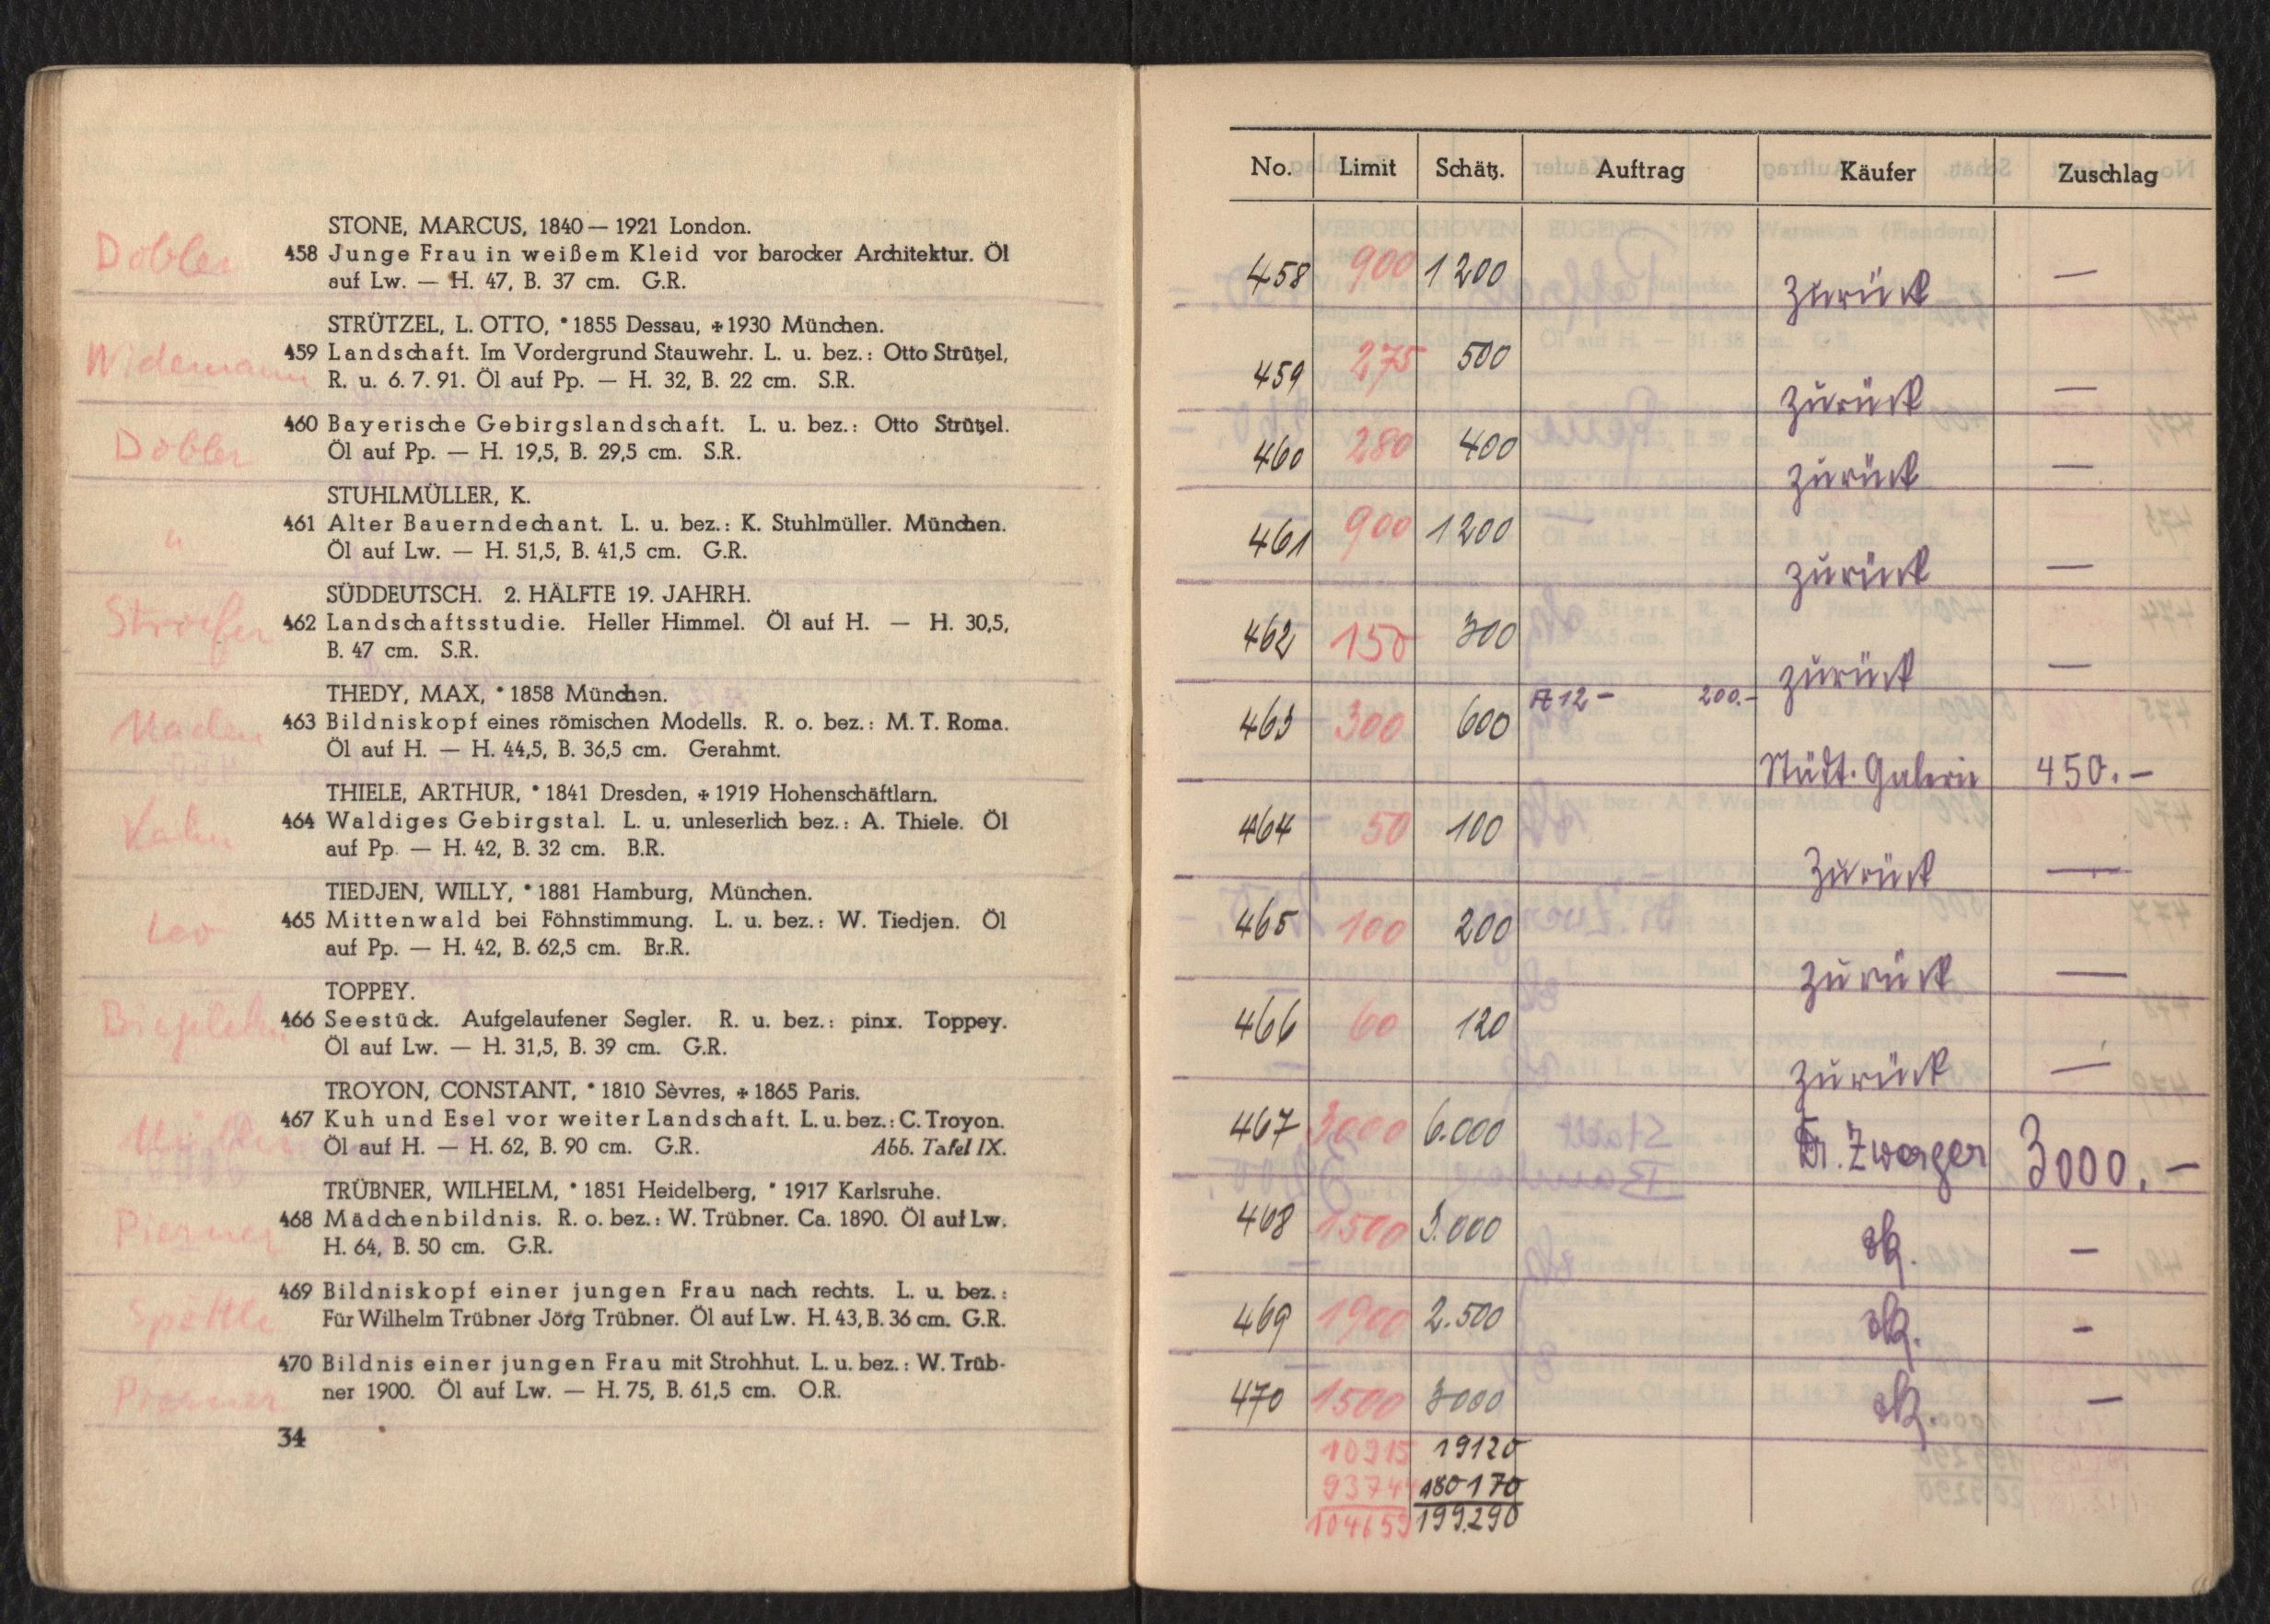 STONE, MARCUS, 1840 — 1921 London.
Döbler
458 Junge Frau in weißem Kleid vor barocker Architektur. Öl
auf Lw. — H. 47, B. 37 cm. G.R.
STRÜTZEL, L. OTTO, * 1855 Dessau, + 1930 München.
Widemann
459 Landschaft. Im Vordergrund Stauwehr. L. u. bez.: Otto Strützel,
R. u. 6. 7. 91. Öl auf Pp. — H. 32, B. 22 cm. S.R.
Döbler
460 Bayerische Gebirgslandschaft. L. u. bez.: Otto Strützel.
Öl auf Pp. — H. 19,5, B. 29,5 cm. S.R.
STUHLMÜLLER, K.
"
461 Alter Bauerndechant. L. u. bez.: K. Stuhlmüller. München.
Öl auf Lw. — H. 51,5, B. 41,5 cm. G.R.
SÜDDEUTSCH. 2. HÄLFTE 19. JAHRH.
462 Landschaftsstudie. Heller Himmel. Öl auf H. — H. 30,5,
B. 47 cm. S.R.
THEDY, MAX, * 1858 München.
463 Bildniskopf eines römischen Modells. R. o. bez.: M. T. Roma.
Öl auf H. — H. 44,5, B. 36,5 cm. Gerahmt.
THIELE, ARTHUR, * 1841 Dresden, + 1919 Hohenschäftlarn.
Kahn
464 Waldiges Gebirgstal. L. u. unleserlich bez.: A. Thiele. Öl
auf Pp. — H. 42, B. 32 cm. B.R.
TIEDJEN, WILLY, * 1881 Hamburg, München.
Leo
465 Mittenwald bei Föhnstimmung. L. u. bez.: W. Tiedjen. Öl
auf Pp. — H. 42, B. 62,5 cm. Br.R.
TOPPEY.
466 Seestück. Aufgelaufener Segler. R. u. bez.: pinx. Toppey.
Öl auf Lw. — H. 31,5, B. 39 cm. G.R.
TROYON, CONSTANT, * 1810 Sèvres, + 1865 Paris.
467 Kuh und Esel vor weiter Landschaft. L. u. bez.: C. Troyon.
Öl auf H. — H. 62, B. 90 cm. G.R. Abb. Tafel IX.
TRÜBNER, WILHELM, * 1851 Heidelberg, * 1917 Karlsruhe.
468 Mädchenbildnis. R. o. bez.: W. Trübner. Ca. 1890. Öl auf Lw.
H. 64, B. 50 cm. G.R.
469 Bildniskopf einer jungen Frau nach rechts. L. u. bez.:
Für Wilhelm Trübner Jörg Trübner. Öl auf Lw. H. 43, B. 36 cm. G.R.
470 Bildnis einer jungen Frau mit Strohhut. L. u. bez.: W. Trüb-
ner 1900. Öl auf Lw. — H. 75, B. 61,5 cm. O.R.
34
No. Limit Schätz. Auftrag Käufer Zuschlag
458 900 1200 zurück —
459 275 500 zurück —
460 280 400 zurück —
461 900 1200 zurück —
462 150 300 zurück —
463 300 600 A 12 – 200.– Städt. Galerie 450.–
464 50 100 Zurück —
465 100 200 zurück —
466 60 120 zurück —
467 3000 6.000 Dr. Zwerger 3000.–
468 1500 3.000 –
469 1900 2.500 –
470 1500 3000 –
10915 19120
93744 180170
104659 199.290